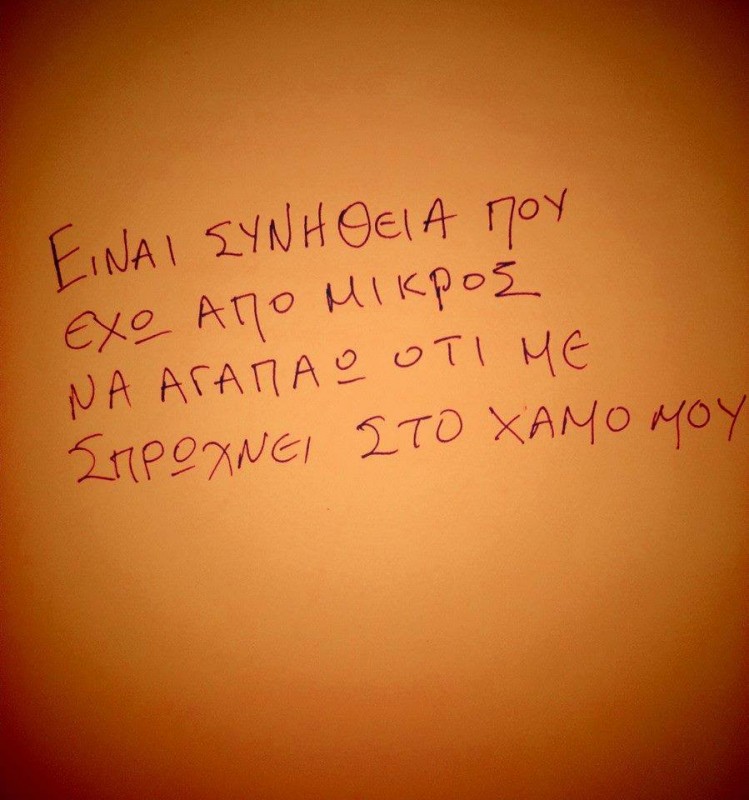 ΕΙΝΑΙ ΣΥΝΗΘΕΙΑ ΠΟΥ
ΕΧΩ ΑΠΟ ΜΙΚΡΟΣ
ΝΑ ΑΓΑΠΑΩ ΟΤΙ ΜΕ
ΣΠΡΩΧΝΕΙ ΣΤΟ ΧΑΜΟ ΜΟΥ